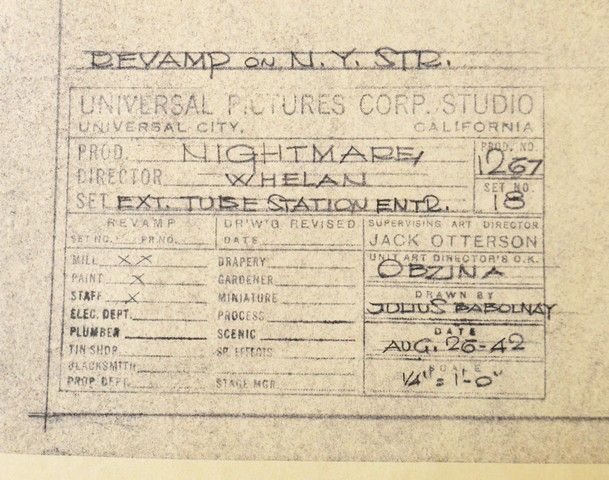 REVAMP ON N.Y. STR.
UNIVERSAL PICTURES CORP. STUDIO
UNIVERSAL CITY, CALIFORNIA
PROD. NIGHTMARE, PROD. NO. 1267
DIRECTOR WHELAN
SET EXT. TUBE STATION ENTR. SET NO. 18
REVAMP DR'W'G REVISED SUPERVISING ART DIRECTOR
SET NO. PR. NO. DATE JACK OTTERSON
UNIT ART DIRECTOR'S O.K.
MILL XX DRAPERY OBZINA
PAINT X GARDENER
STAFF X MINIATURE DRAWN BY
ELEC. DEPT. PROCESS JULIUS BABOLNAY
PLUMBER SCENIC DATE
TIN SHOP SP. EFFECTS AUG. 26-42
BLACKSMITH
PROP. DEPT. STAGE MGR. 1/4" = 1'-0"